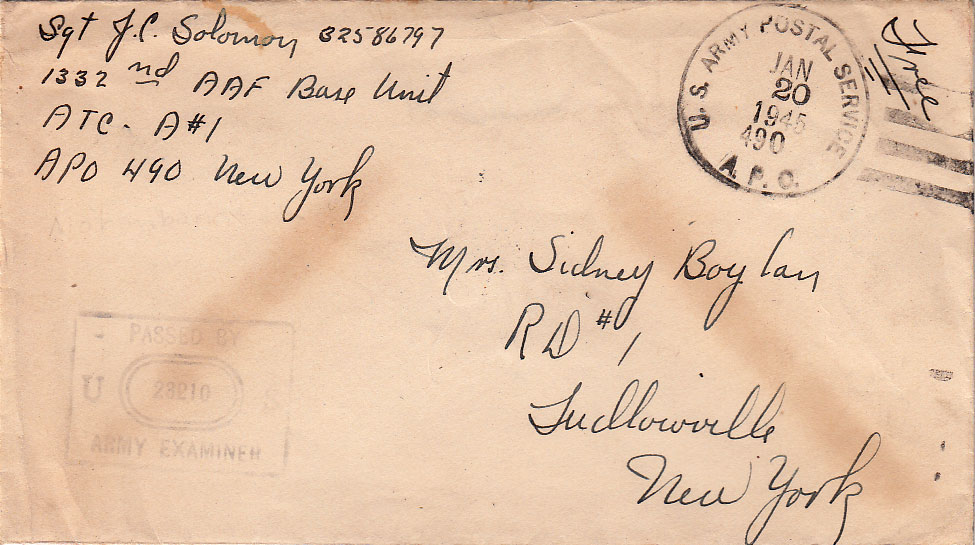 Sgt J.C. Solomon 32586797
1332 nd AAF Base Unit
ATC - A#1
APO 490 New York
U. S. ARMY POSTAL SERVICE
JAN
20
1945
490
A. P. O.
Free
Mrs. Sidney Boylan
RD #1
Ludlowville
New York
PASSED BY
U 23210 S
ARMY EXAMINER